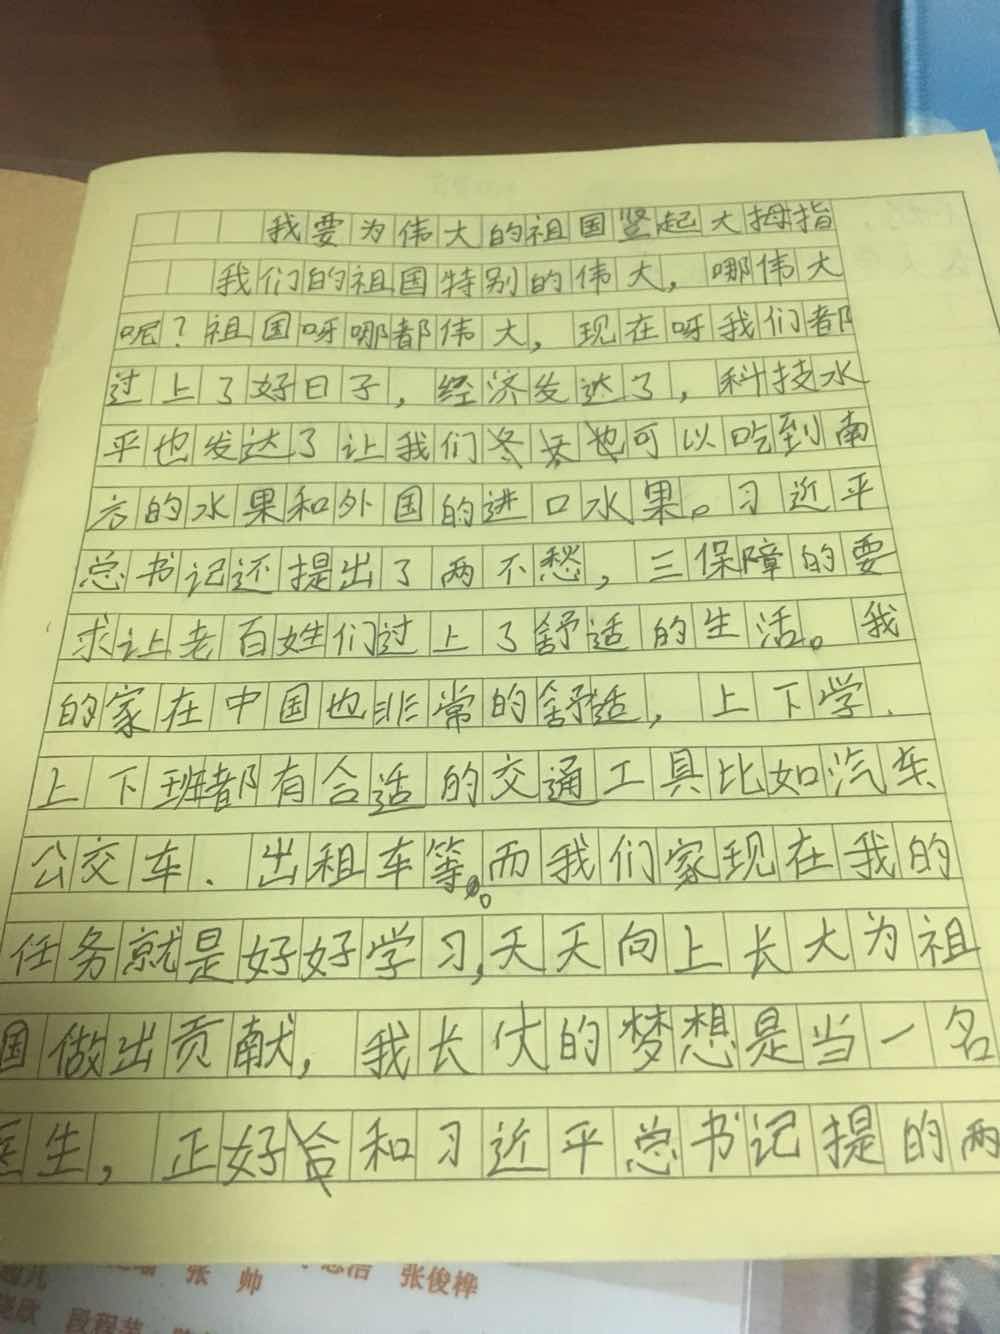 我要为伟大的祖国竖起大拇指
我们的祖国特别的伟大，哪伟大
呢？祖国呀哪都伟大，现在呀我们都
过上了好日子，经济发达了，科技水
平也发达了让我们冬天也可以吃到南
方的水果和外国的进口水果。习近平
总书记还提出了两不愁，三保障的要
求让老百姓们过上了舒适的生活。我
的家在中国也非常的舒适，上下学、
上下班都有合适的交通工具比如汽车
公交车、出租车等。而我们家现在我的
任务就是好好学习，天天向上长大为祖
国做出贡献，我长大的梦想是当一名
医生，正好合和习近平总书记提的两
张帅 张俊桦